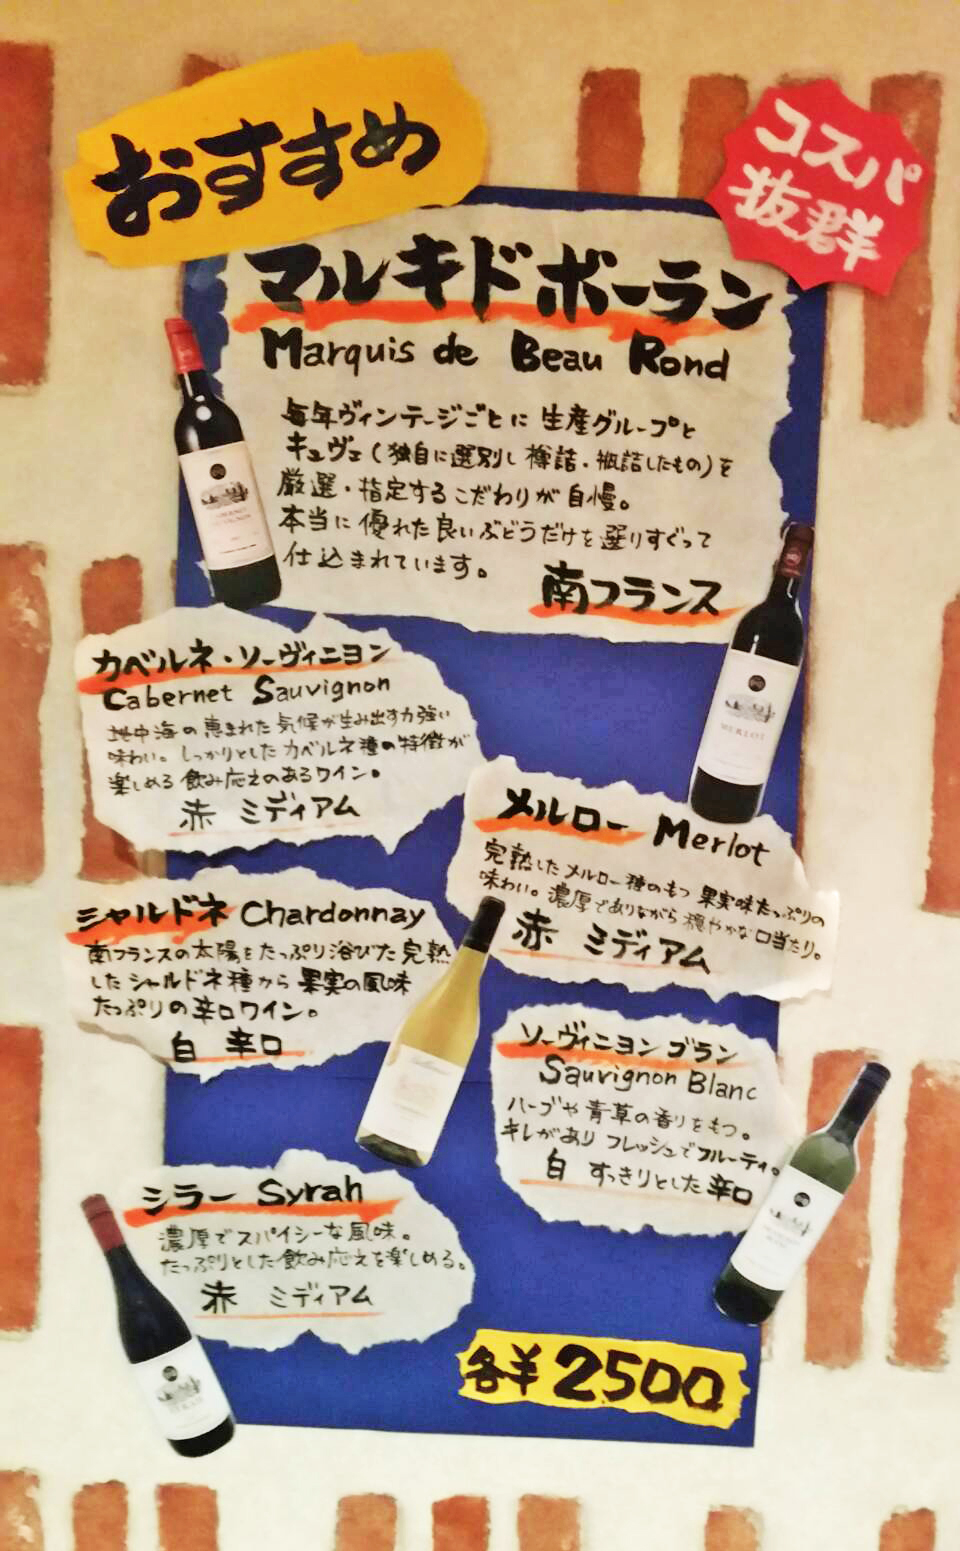 おすすめ
コスパ
抜群
マルキドボーラン
Marquis de Beau Rond
毎年ヴィンテージごとに生産グループと
キュヴェ(独自に選別し樽詰・瓶詰したもの)を
厳選・指定するこだわりが自慢。
本当に優れた良いぶどうだけを選りすぐって
仕込まれています。
南フランス
カベルネ・ソーヴィニヨン
Cabernet Sauvignon
地中海の恵まれた気候が生み出す力強い
味わい。しっかりとしたカベルネ種の特徴が
楽しめる飲み応えのあるワイン。
赤 ミディアム
MERLOT
メルロー Merlot
完熟したメルロー種のもつ果実味たっぷりの
味わい。濃厚でありながら穏やかな口当たり。
赤 ミディアム
シャルドネ Chardonnay
南フランスの太陽をたっぷり浴びた完熟
したシャルドネ種から果実の風味
たっぷりの辛口ワイン。
白 辛口
ソーヴィニヨンブラン
Sauvignon Blanc
ハーブや青草の香りをもつ。
キレがありフレッシュでフルーティ。
白 すっきりとした辛口
シラー Syrah
濃厚でスパイシーな風味。
たっぷりとした飲み応えを楽しめる。
赤 ミディアム
SYRAH
各¥2500